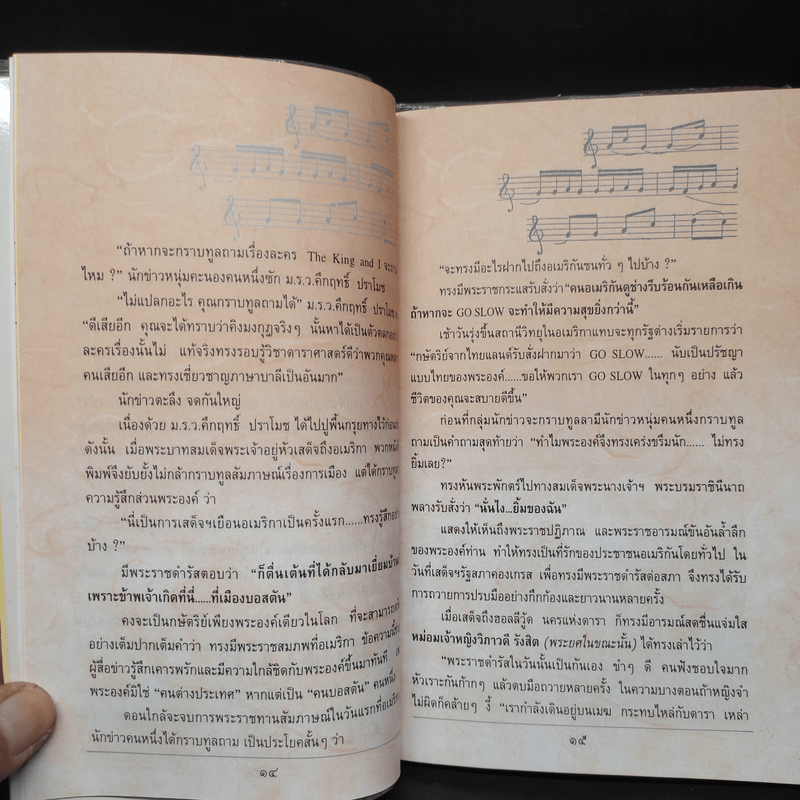 “ถ้าหากจะกราบทูลถามเรื่องละคร The King and I
ไหม ?” นักข่าวหนุ่มคะนองคนหนึ่งซัก ม.ร.ว.คึกฤทธิ์ ปราโมช
“ไม่แปลกอะไร คุณกราบทูลถามได้” ม.ร.ว.คึกฤทธิ์ ปราโมช
“ดีเสียอีก คุณจะได้ทราบว่าคิงมงกุฎจริงๆ นั้นหาได้เป็นตัวตลก
ละครเรื่องนั้นไม่ แท้จริงทรงรอบรู้วิชาดาราศาสตร์ดีกว่าพวกคุณ
คนเสียอีก และทรงเชี่ยวชาญภาษาบาลีเป็นอันมาก”
นักข่าวตะลึง จดกันใหญ่
เนื่องด้วย ม.ร.ว.คึกฤทธิ์ ปราโมช ได้ไปปูพื้นกรุยทางไว้ก่อน
ดังนั้น เมื่อพระบาทสมเด็จพระเจ้าอยู่หัวเสด็จถึงอเมริกา พวก
พิมพ์จึงยับยั้งไม่กล้ากราบทูลสัมภาษณ์เรื่องการเมือง แต่ได้กราบทูล
ความรู้สึกส่วนพระองค์ ว่า
“นี่เป็นการเสด็จฯเยือนอเมริกาเป็นครั้งแรก......ทรงรู้สึก
บ้าง ?”
มีพระราชดำรัสตอบว่า “ก็ตื่นเต้นที่ได้กลับมาเยี่ยมบ้าน
เพราะข้าพเจ้าเกิดที่นี่......ที่เมืองบอสตัน”
คงจะเป็นกษัตริย์เพียงพระองค์เดียวในโลก ที่จะสามารถ
อย่างเต็มปากเต็มคำว่า ทรงมีพระราชสมภพที่อเมริกา ข้อความนี้
ผู้สื่อข่าวรู้สึกเคารพรักและมีความใกล้ชิดกับพระองค์ขึ้นมาทันที
พระองค์มิใช่ “คนต่างประเทศ” หากแต่เป็น “คนบอสตัน” คนหนึ่ง
ตอนใกล้จะจบการพระราชทานสัมภาษณ์ในวันแรกที่อเมริกา
นักข่าวคนหนึ่งได้กราบทูลถาม เป็นประโยคสั้นๆ ว่า
๑๔
“จะทรงมีอะไรฝากไปถึงอเมริกันชนทั่ว ๆ ไปบ้าง ?”
ทรงมีพระราชกระแสรับสั่งว่า“คนอเมริกันดูช่างรีบร้อนกันเหลือเกิน
ถ้าหากจะ GO SLOW จะทำให้มีความสุขยิ่งกว่านี้”
เช้าวันรุ่งขึ้นสถานีวิทยุในอเมริกาแทบจะทุกรัฐต่างเริ่มรายการว่า
“กษัตริย์จากไทยแลนด์รับสั่งฝากมาว่า GO SLOW...... นับเป็นปรัชญา
แบบไทยของพระองค์......ขอให้พวกเรา GO SLOW ในทุกๆ อย่าง แล้ว
ชีวิตของคุณจะสบายดีขึ้น”
ก่อนที่กลุ่มนักข่าวจะกราบทูลลามีนักข่าวหนุ่มคนหนึ่งกราบทูล
ถามเป็นคำถามสุดท้ายว่า “ทำไมพระองค์จึงทรงเคร่งขรึมนัก...... ไม่ทรง
ยิ้มเลย?”
ทรงหันพระพักตร์ไปทางสมเด็จพระนางเจ้าฯ พระบรมราชินีนาถ
พลางรับสั่งว่า “นั่นไง...ยิ้มของฉัน”
แสดงให้เห็นถึงพระราชปฏิภาณ และพระราชอารมณ์ขันอันล้ำลึก
ของพระองค์ท่าน ทำให้ทรงเป็นที่รักของประชาชนอเมริกันโดยทั่วไป ใน
วันที่เสด็จฯรัฐสภาคองเกรส เพื่อทรงมีพระราชดำรัสต่อสภา จึงทรงได้รับ
การถวายการปรบมืออย่างกึกก้องและยาวนานหลายครั้ง
เมื่อเสด็จถึงฮอลลีวู้ด นครแห่งดารา ก็ทรงมีอารมณ์สดชื่นแจ่มใส
หม่อมเจ้าหญิงวิภาวดี รังสิต (พระยศในขณะนั้น) ได้ทรงเล่าไว้ว่า
“พระราชดำรัสในวันนั้นเป็นกันเอง ขำๆ ดี คนฟังชอบใจมาก
หัวเราะกันก๊ากๆ แล้วตบมือถวายหลายครั้ง ในความบางตอนถ้าหญิงจำ
ไม่ผิดก็คล้ายๆ งี้ “เรากำลังเดินอยู่บนเมฆ กระทบไหล่กับดารา เหล่า
๑๕